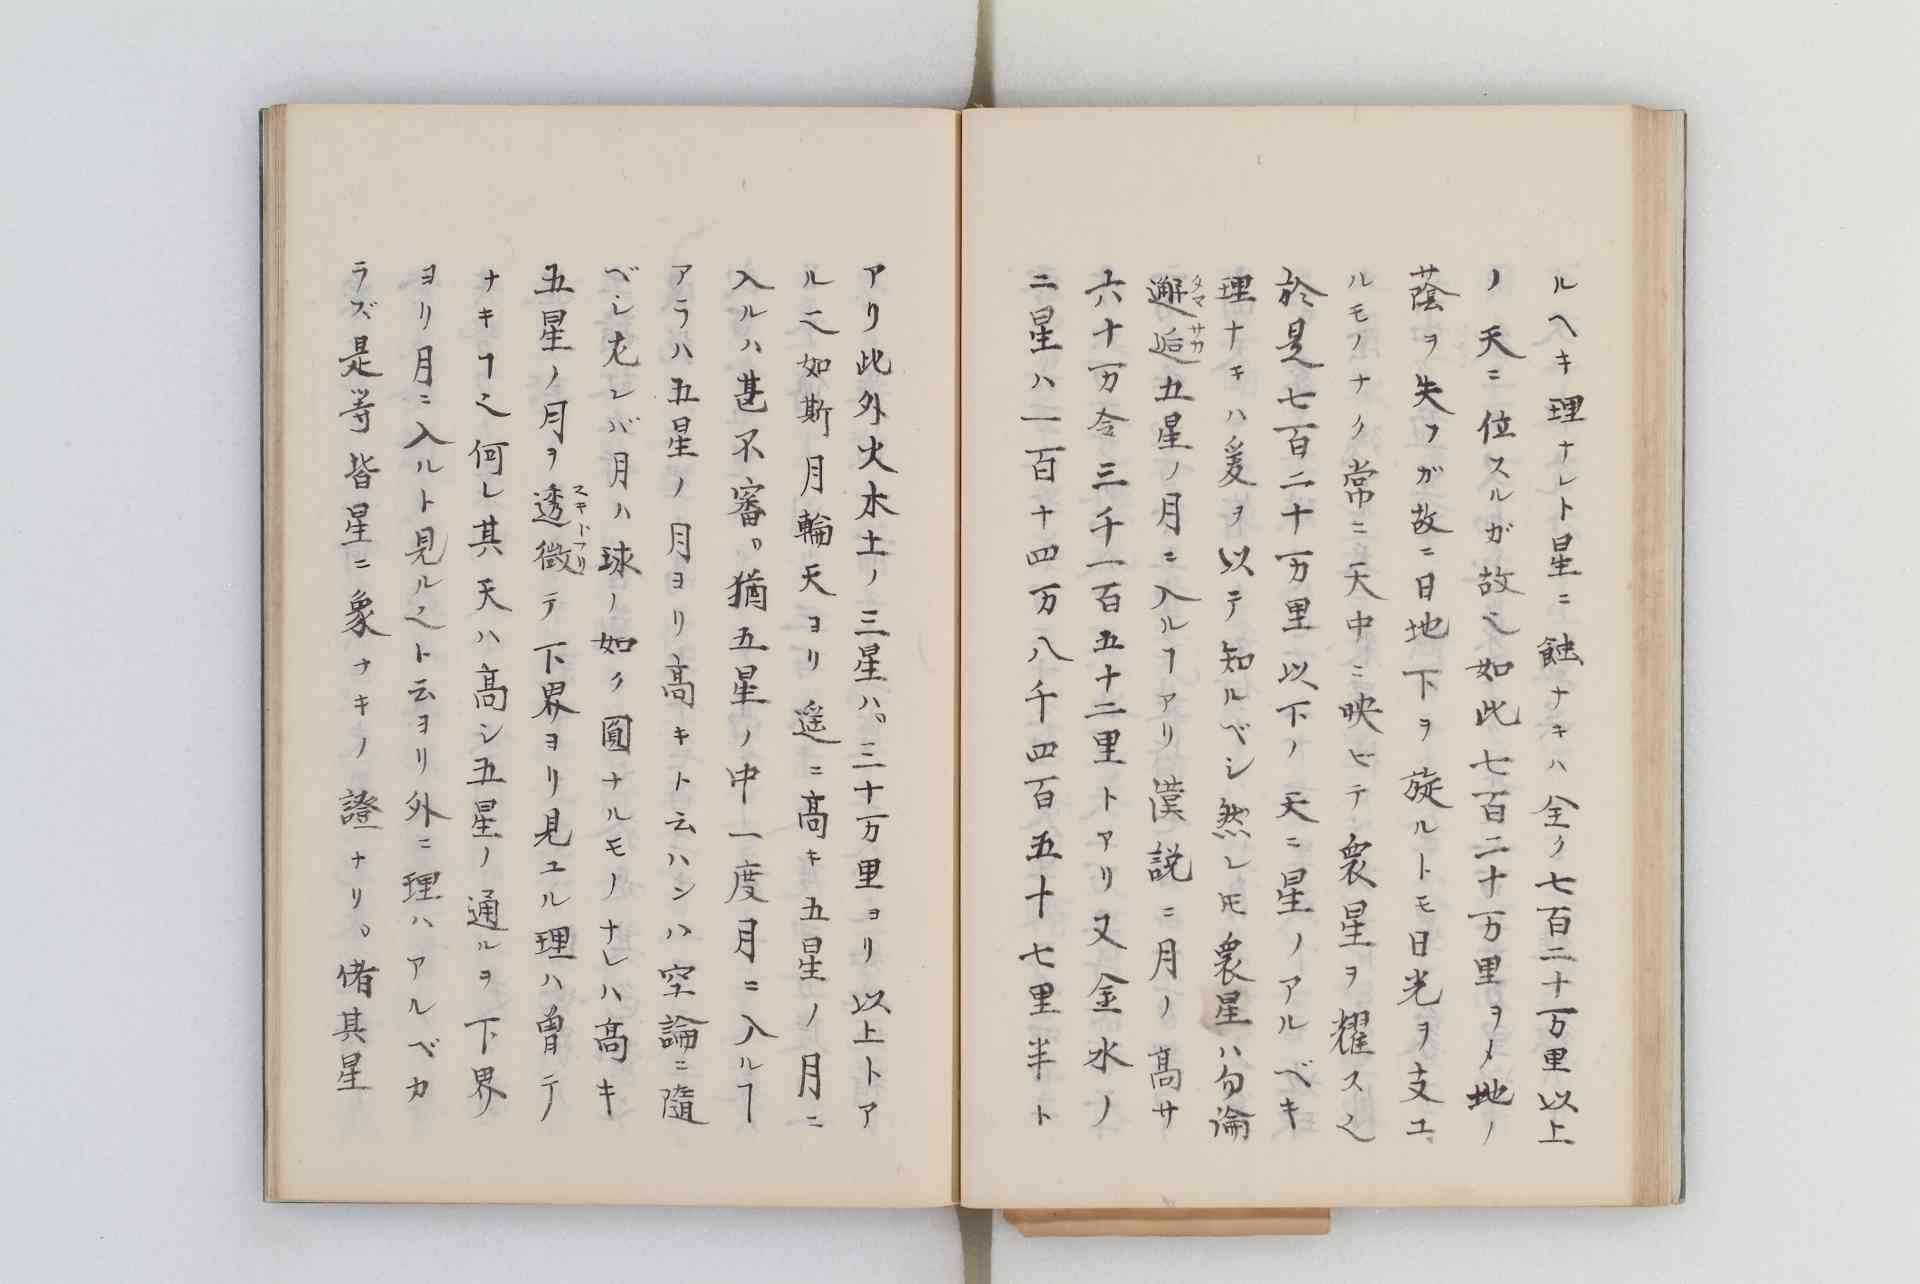 ルヘキ理ナレト星ニ蝕ナキハ全ク七百二十万里以上
ノ天ニ位スルガ故也如此七百二十万里ヲ〆地ノ
蔭ヲ失フガ故ニ日地下ヲ旋ルトモ日光ヲ支ユ
ルモノナク常ニ天中ニ映ビテ衆星ヲ耀ス也
於是七百二十万里以下ノ天ニ星ノアルベキ
理ナキハ爰ヲ以テ知ルベシ然レ𪜈衆星ハ勿論
邂逅五星ノ月ニ入ルヿアリ漢説ニ月ノ高サ
タマサカ
六十万令三千一百五十二里トアリ又金水ノ
二星ハ一百十四万八千四百五十七里半ト
アリ此外火木土ノ三星ハ三十万里ヨリ以上トア
ル也如斯月輪天ヨリ遥ニ高キ五星ノ月ニ
入ルハ甚不審。猶五星ノ中一度月ニ入ルヿ
アラハ五星ノ月ヨリ高キト云ハンハ空論ニ随
ベシ左レバ月ハ球ノ如ク圓ナルモノナレハ高キ
五星ノ月ヲ透徴テ下界ヨリ見ユル理ハ曽テ
スキトフリ
ナキヿ也何レ其天ハ高シ五星ノ通ルヲ下界
ヨリ月ニ入ルト見ル也ト云ヨリ外ニ理ハアルベカ
ラズ是等皆星ニ象ナキノ證ナリ。偖其星